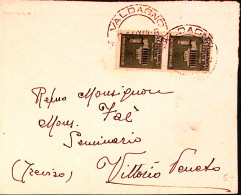 VALDAGNO
Rev.mo Monsignor
Mons. Faè
Seminario
(Treviso) Vittorio Veneto